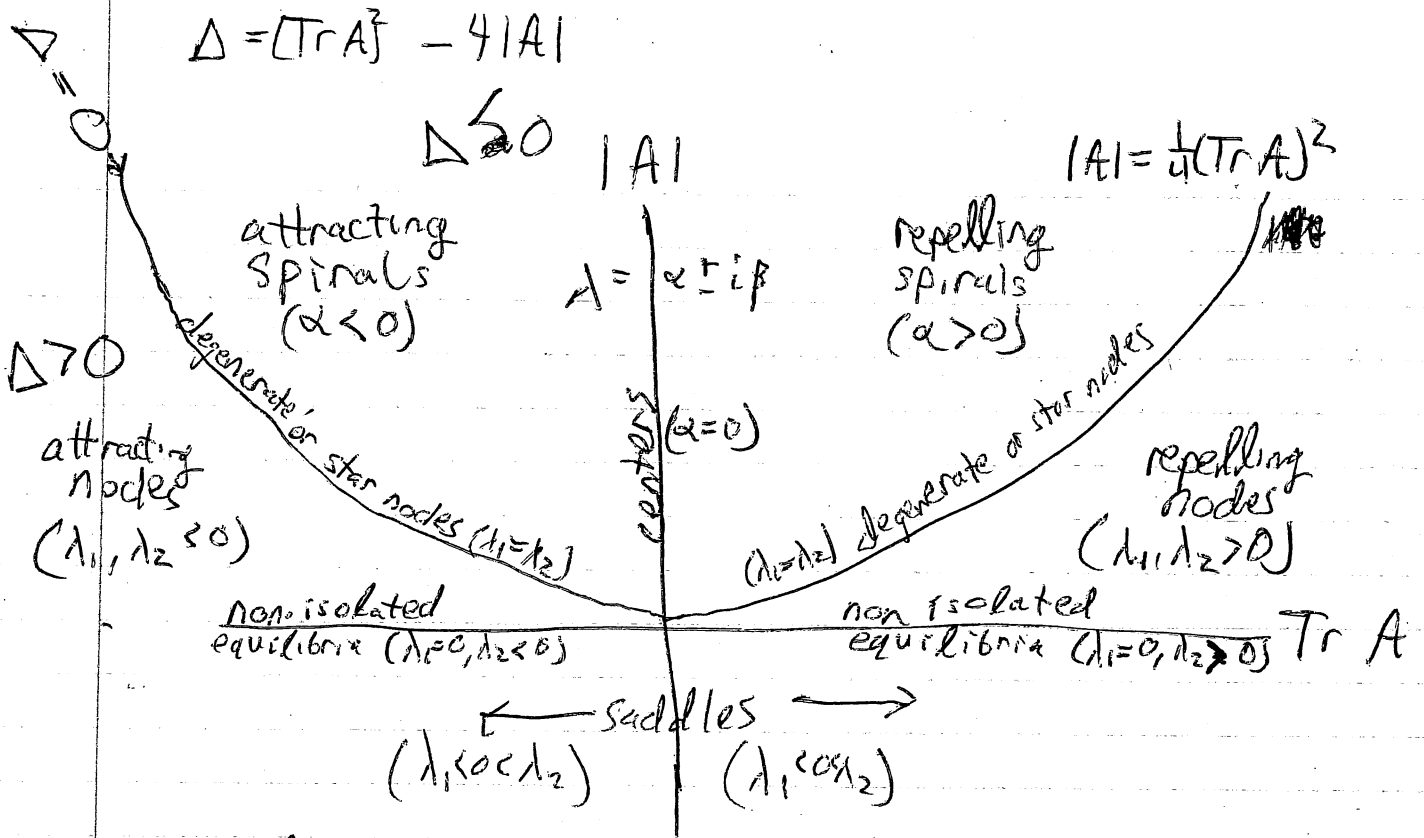 Δ = 0
Δ = [Tr A]² - 4|A|
Δ < 0
|A|
|A| = 1/4 (Tr A)²
attracting
spirals
(α < 0)
λ = α ± iβ
repelling
spirals
(α > 0)
Δ > 0
degenerate or
star nodes (λ₁=λ₂)
centers
(α=0)
(λ₁=λ₂) degenerate or star nodes
attracting
nodes
(λ₁, λ₂ < 0)
repelling
nodes
(λ₁, λ₂ > 0)
non isolated
equilibria (λ₁=0, λ₂<0)
non isolated
equilibria (λ₁=0, λ₂>0)
Tr A
← saddles →
(λ₁<0<λ₂)
(λ₁<0<λ₂)